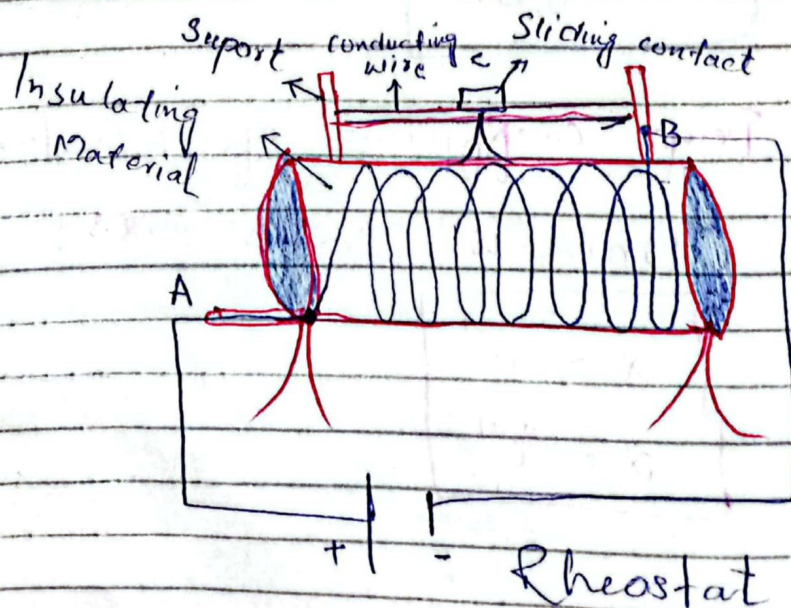 Suport
conducting
wire
c
Sliding contact
Insulating
Material
B
A
+
-
Rheostat